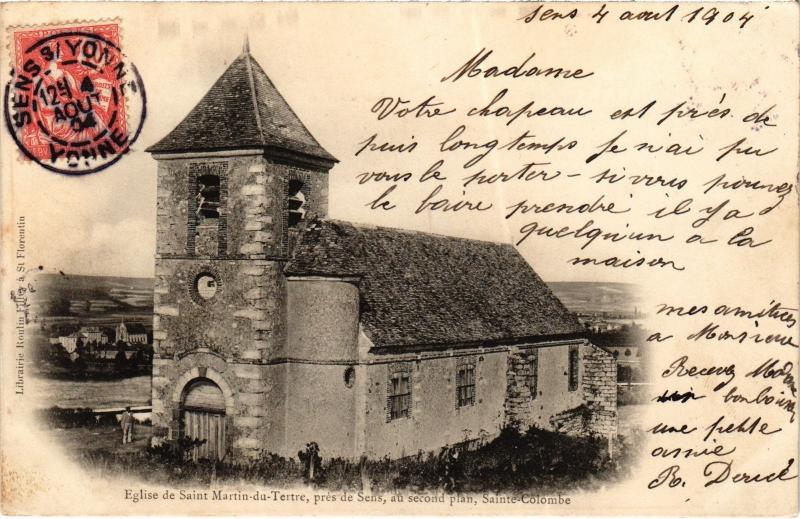 Sens 4 aout 1904
Madame
Votre chapeau est près de
puis longtemps je n'ai pu
vous le porter - si vous pouvez
le faire prendre il y a
quelqu'un a la
maison
mes amitiés
a Monsieur
Recevez
un bonbaiser
une petite
amie
R.
SENS S/YONNE
AOUT
04
YONNE
Librairie Roulin à St Florentin
Eglise de Saint Martin-du-Tertre, près de Sens, au second plan, Sainte-Colombe